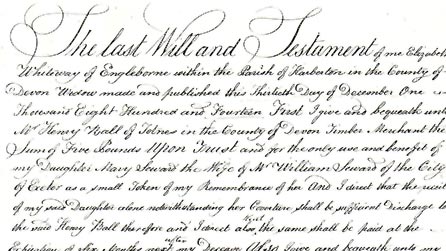 The last Will and Testament of me Elizabeth
Whiteway of Engleborne within the Parish of Harberton in the County of
Devon Widow made and published this Thirtieth Day of December One
Thousand Eight Hundred and Fourteen First I give and bequeath unto
Mr. Henry Ball of Totnes in the County of Devon Timber Merchant the
Sum of Five Pounds Upon Trust and for the only use and benefit of
my Daughter Mary Seward the Wife of Mr. William Seward of the City
of Exeter as a small Token of my Remembrance of her And I direct that the receit
of my said Daughter alone notwithstanding her Coverture shall be sufficient Discharge to
the said Henry Ball therefore and I direct also that the same shall be paid at the
Expiration of Six Months next after my Decease Also I give and bequeath unto